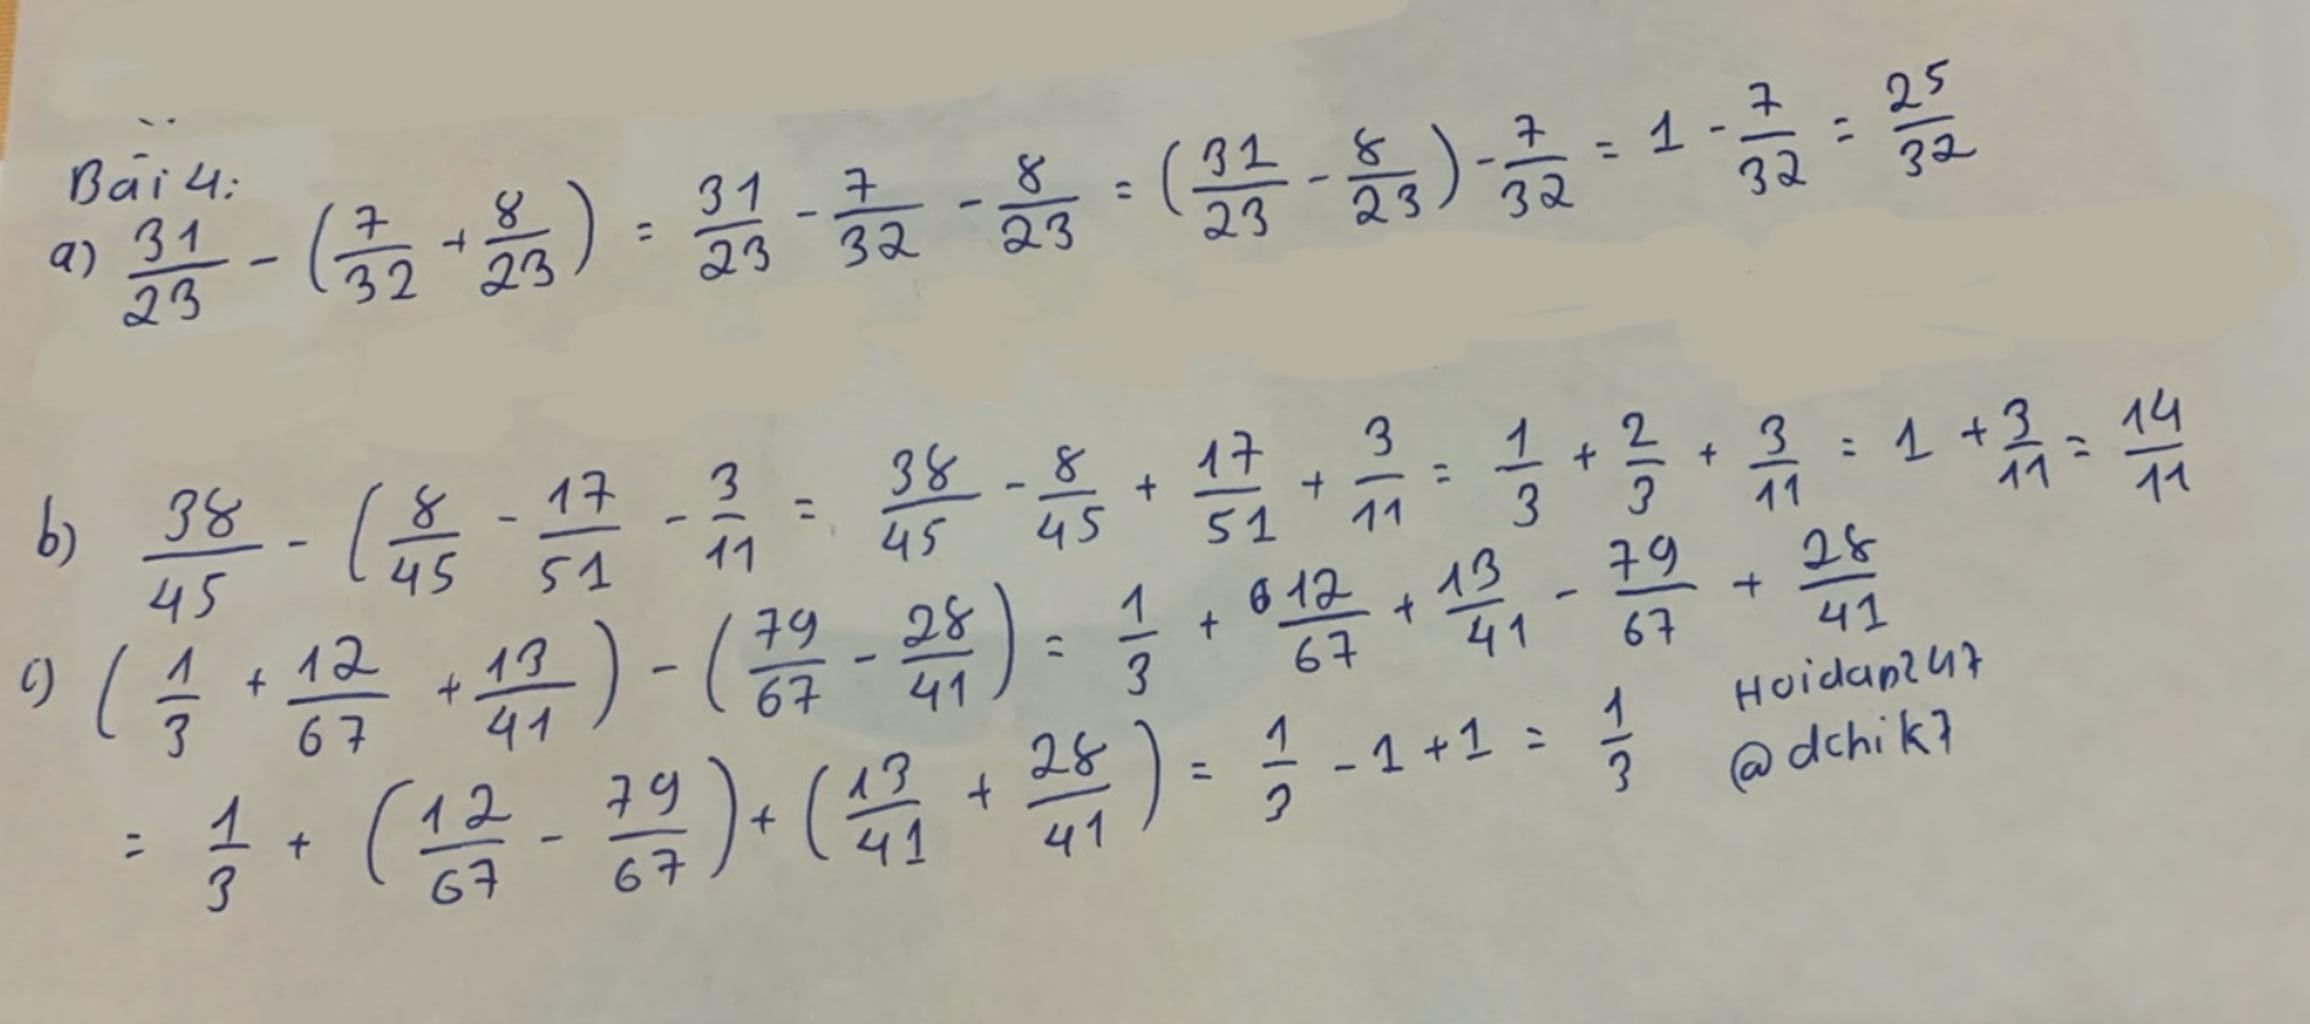 Bài 4:
a) 31/23 - (7/32 + 8/23) = 31/23 - 7/32 - 8/23 = (31/23 - 8/23) - 7/32 = 1 - 7/32 = 25/32
b) 38/45 - (8/45 - 17/51 - 3/11 = 38/45 - 8/45 + 17/51 + 3/11 = 1/3 + 2/3 + 3/11 = 1 + 3/11 = 14/11
c) (1/3 + 12/67 + 13/41) - (79/67 - 28/41) = 1/3 + 12/67 + 13/41 - 79/67 + 28/41
= 1/3 + (12/67 - 79/67) + (13/41 + 28/41) = 1/3 - 1 + 1 = 1/3
Hoidap247
@dchik7